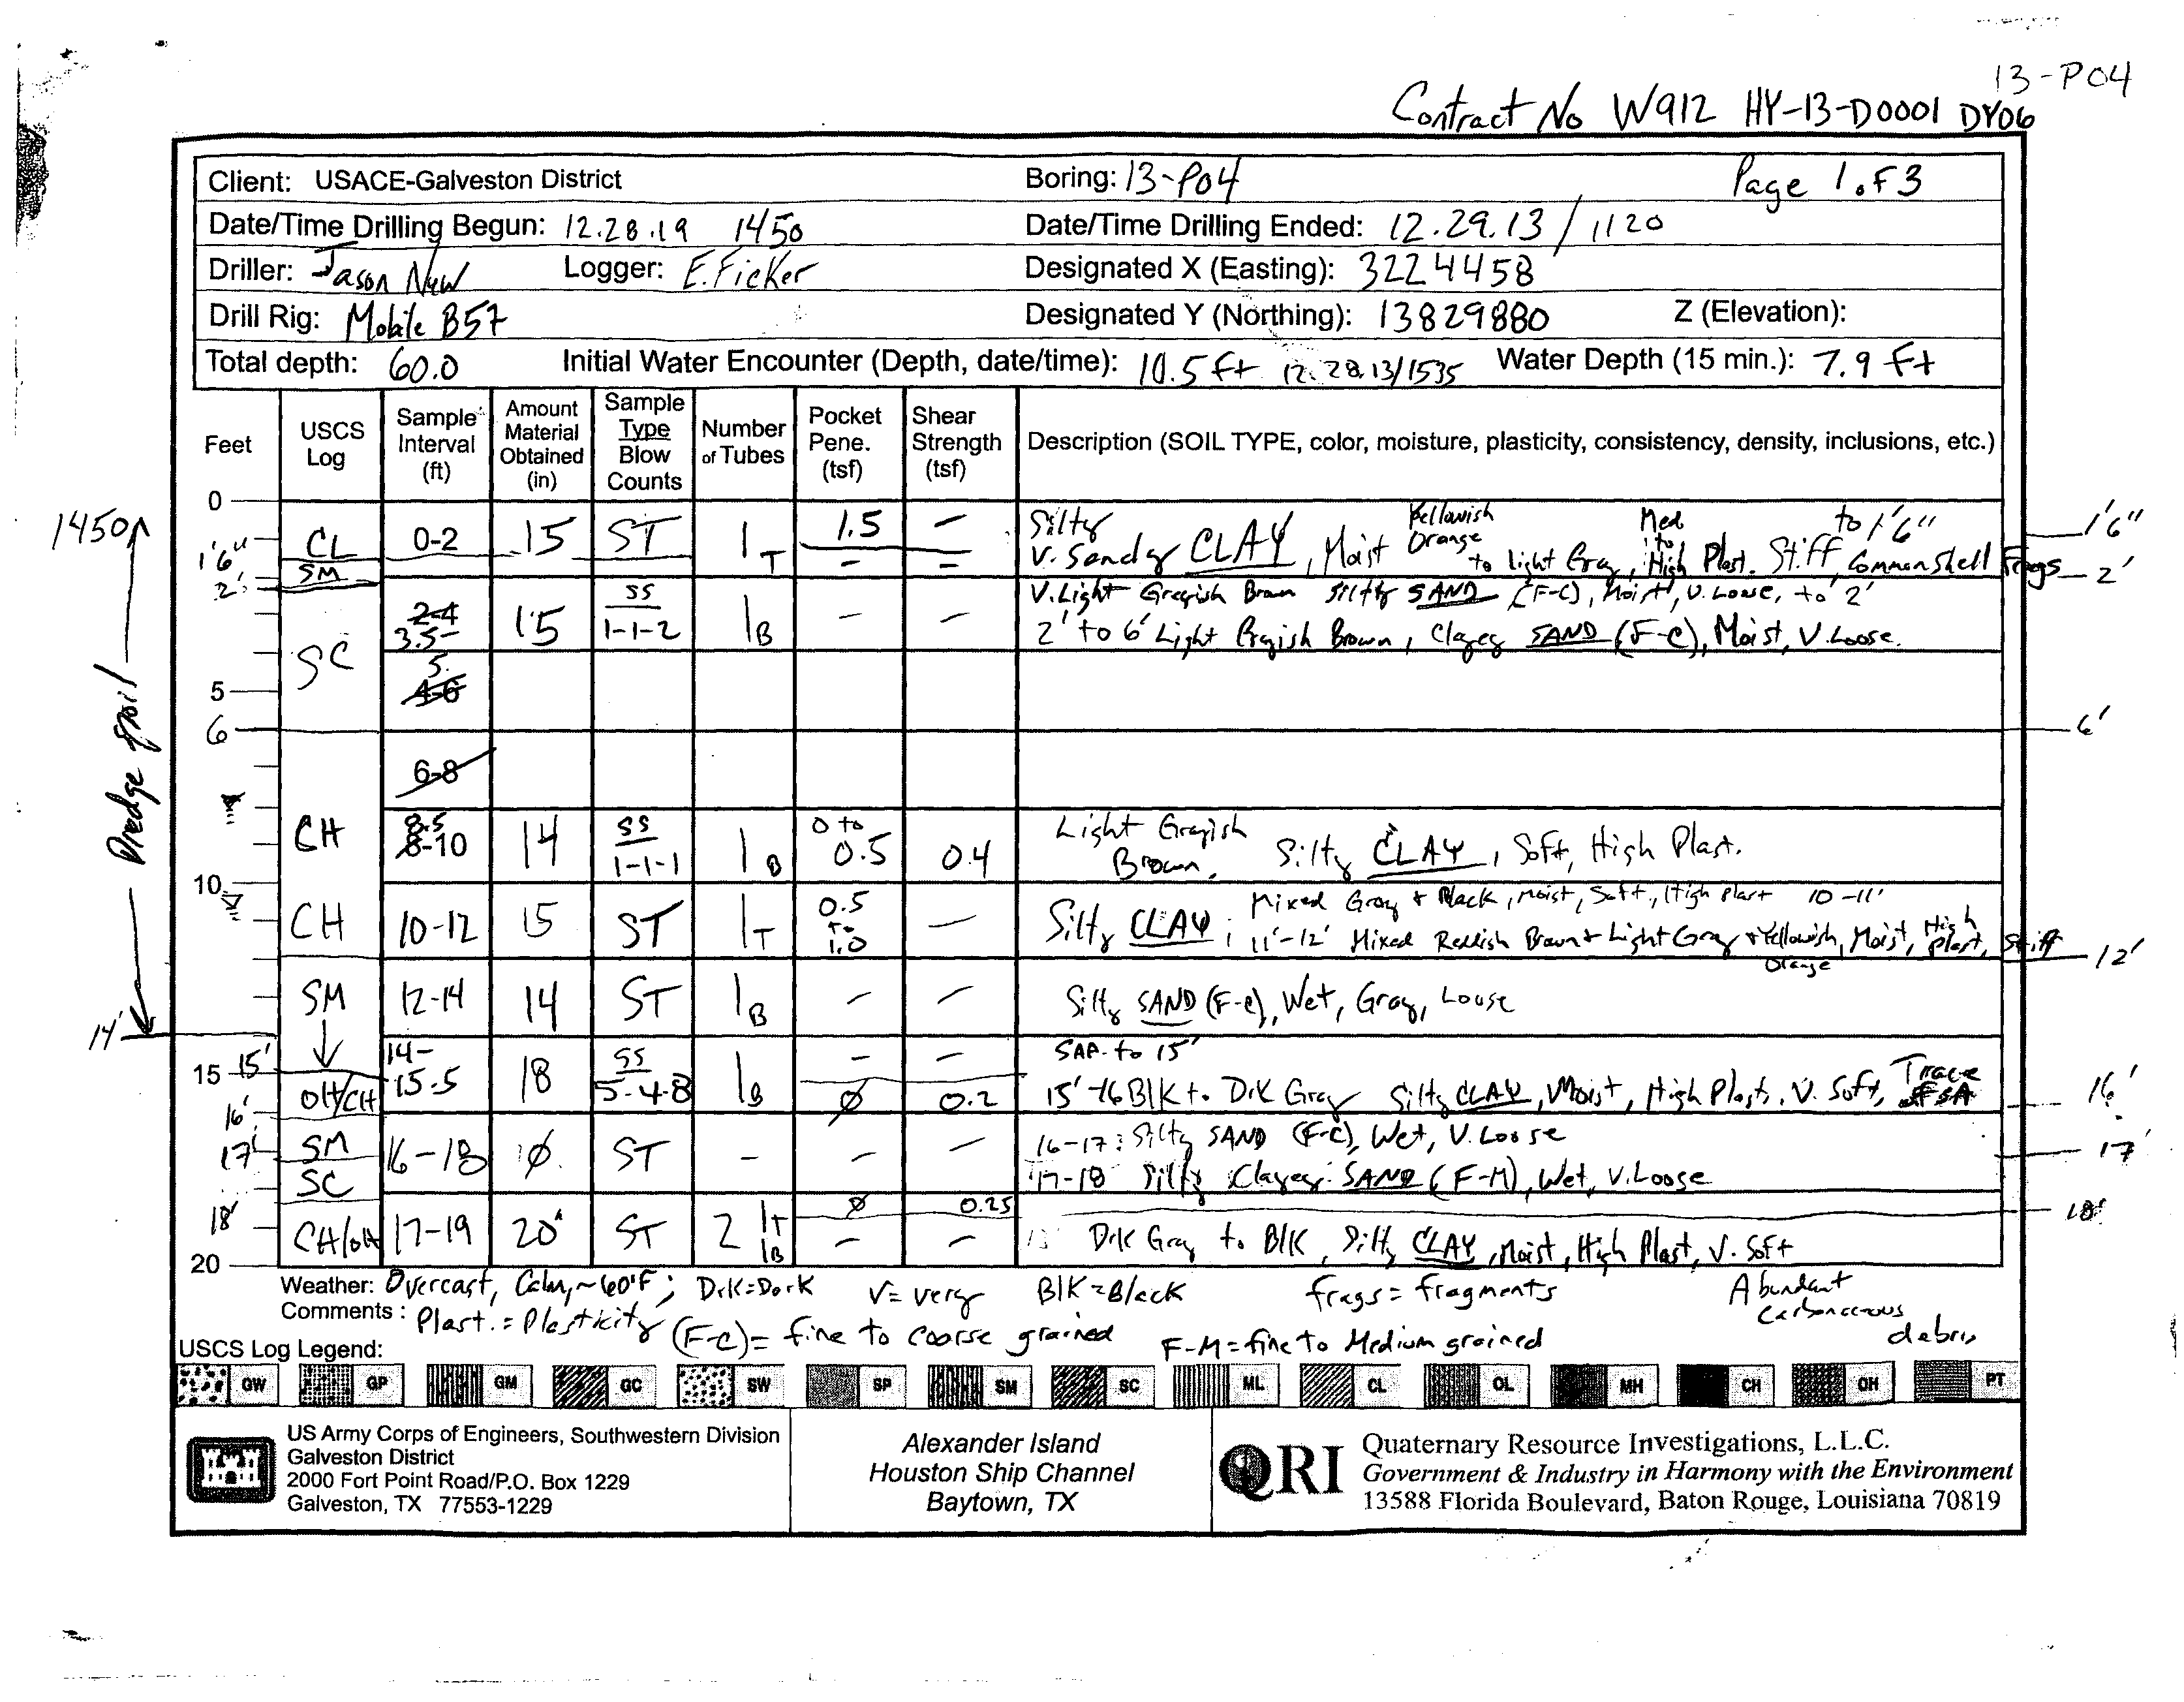 13-P04
Contract No W912 HY-13-D0001 DY06
Client: USACE-Galveston District Boring: 13-P04 Page 1 of 3
Date/Time Drilling Begun: 12.28.19 1450 Date/Time Drilling Ended: 12.29.13 / 1120
Driller: Jason New Logger: E. Ficker Designated X (Easting): 3224458
Drill Rig: Mobile B57 Designated Y (Northing): 13829880 Z (Elevation):
Total depth: 60.0 Initial Water Encounter (Depth, date/time): 10.5 ft 12.28.13/1535 Water Depth (15 min.): 7.9 ft
Feet USCS Log Sample Interval (ft) Amount Material Obtained (in) Sample Type Blow Counts Number of Tubes Pocket Pene. (tsf) Shear Strength (tsf) Description (SOIL TYPE, color, moisture, plasticity, consistency, density, inclusions, etc.)
0
1450
Dredge spoil
1'6" CL 0-2 15 ST 1T 1.5 – Silty V. Sandy CLAY, Moist Yellowish Orange to light Gray, Med to High Plast. Stiff, Common Shell Frags to 1'6" 1'6"
2' SM – = V. Light Grayish Brown Silty SAND (F-C), Moist, V. Loose, to 2' 2'
SC 2-4 3.5-5 15 SS 1-1-2 1B – – 2' to 6' Light Grayish Brown, Clayey SAND (F-C), Moist, V. Loose.
5 4-6
6 6'
6-8
CH 8.5 8-10 14 SS 1-1-1 1B 0 to 0.5 0.4 Light Grayish Brown, Silty CLAY, Soft, High Plast.
10
CH 10-12 15 ST 1T 0.5 to 1.0 – Silty CLAY; Mixed Gray & Black, Moist, Soft, High Plast 10-11'
11'-12' Mixed Reddish Brown & Light Gray & Yellowish Orange, Moist, High Plast, Stiff 12'
SM 12-14 14 ST 1B – – Silty SAND (F-C), Wet, Gray, Loose
14'
15 15' 14-15.5 18 SS 5-4-8 1B – – SAA to 15'
16' OH/CH Ø 0.2 15'-16 Blk to Drk Gray Silty CLAY, Moist, High Plast, V. Soft, Trace 16'
17' SM 16-18 Ø ST – – – 16-17: Silty SAND (F-C), Wet, V. Loose 17'
SC 17-18 Silty Clayey SAND (F-M), Wet, V. Loose
18' CH/OH 17-19 20" ST 2 1T 1B Ø 0.25 – – Drk Gray to Blk, Silty CLAY, Moist, High Plast, V. Soft 18'
20
Weather: Overcast, Calm, ~60°F; Drk=Dark V=very Blk=Black frags=fragments Abundant carbonaceous debris
Comments: Plast.=Plasticity (F-C)=fine to coarse grained F-M=fine to Medium grained
USCS Log Legend:
GW GP GM GC SW SP SM SC ML CL OL MH CH OH PT
US Army Corps of Engineers, Southwestern Division
Galveston District
2000 Fort Point Road/P.O. Box 1229
Galveston, TX 77553-1229
Alexander Island
Houston Ship Channel
Baytown, TX
QRI
Quaternary Resource Investigations, L.L.C.
Government & Industry in Harmony with the Environment
13588 Florida Boulevard, Baton Rouge, Louisiana 70819